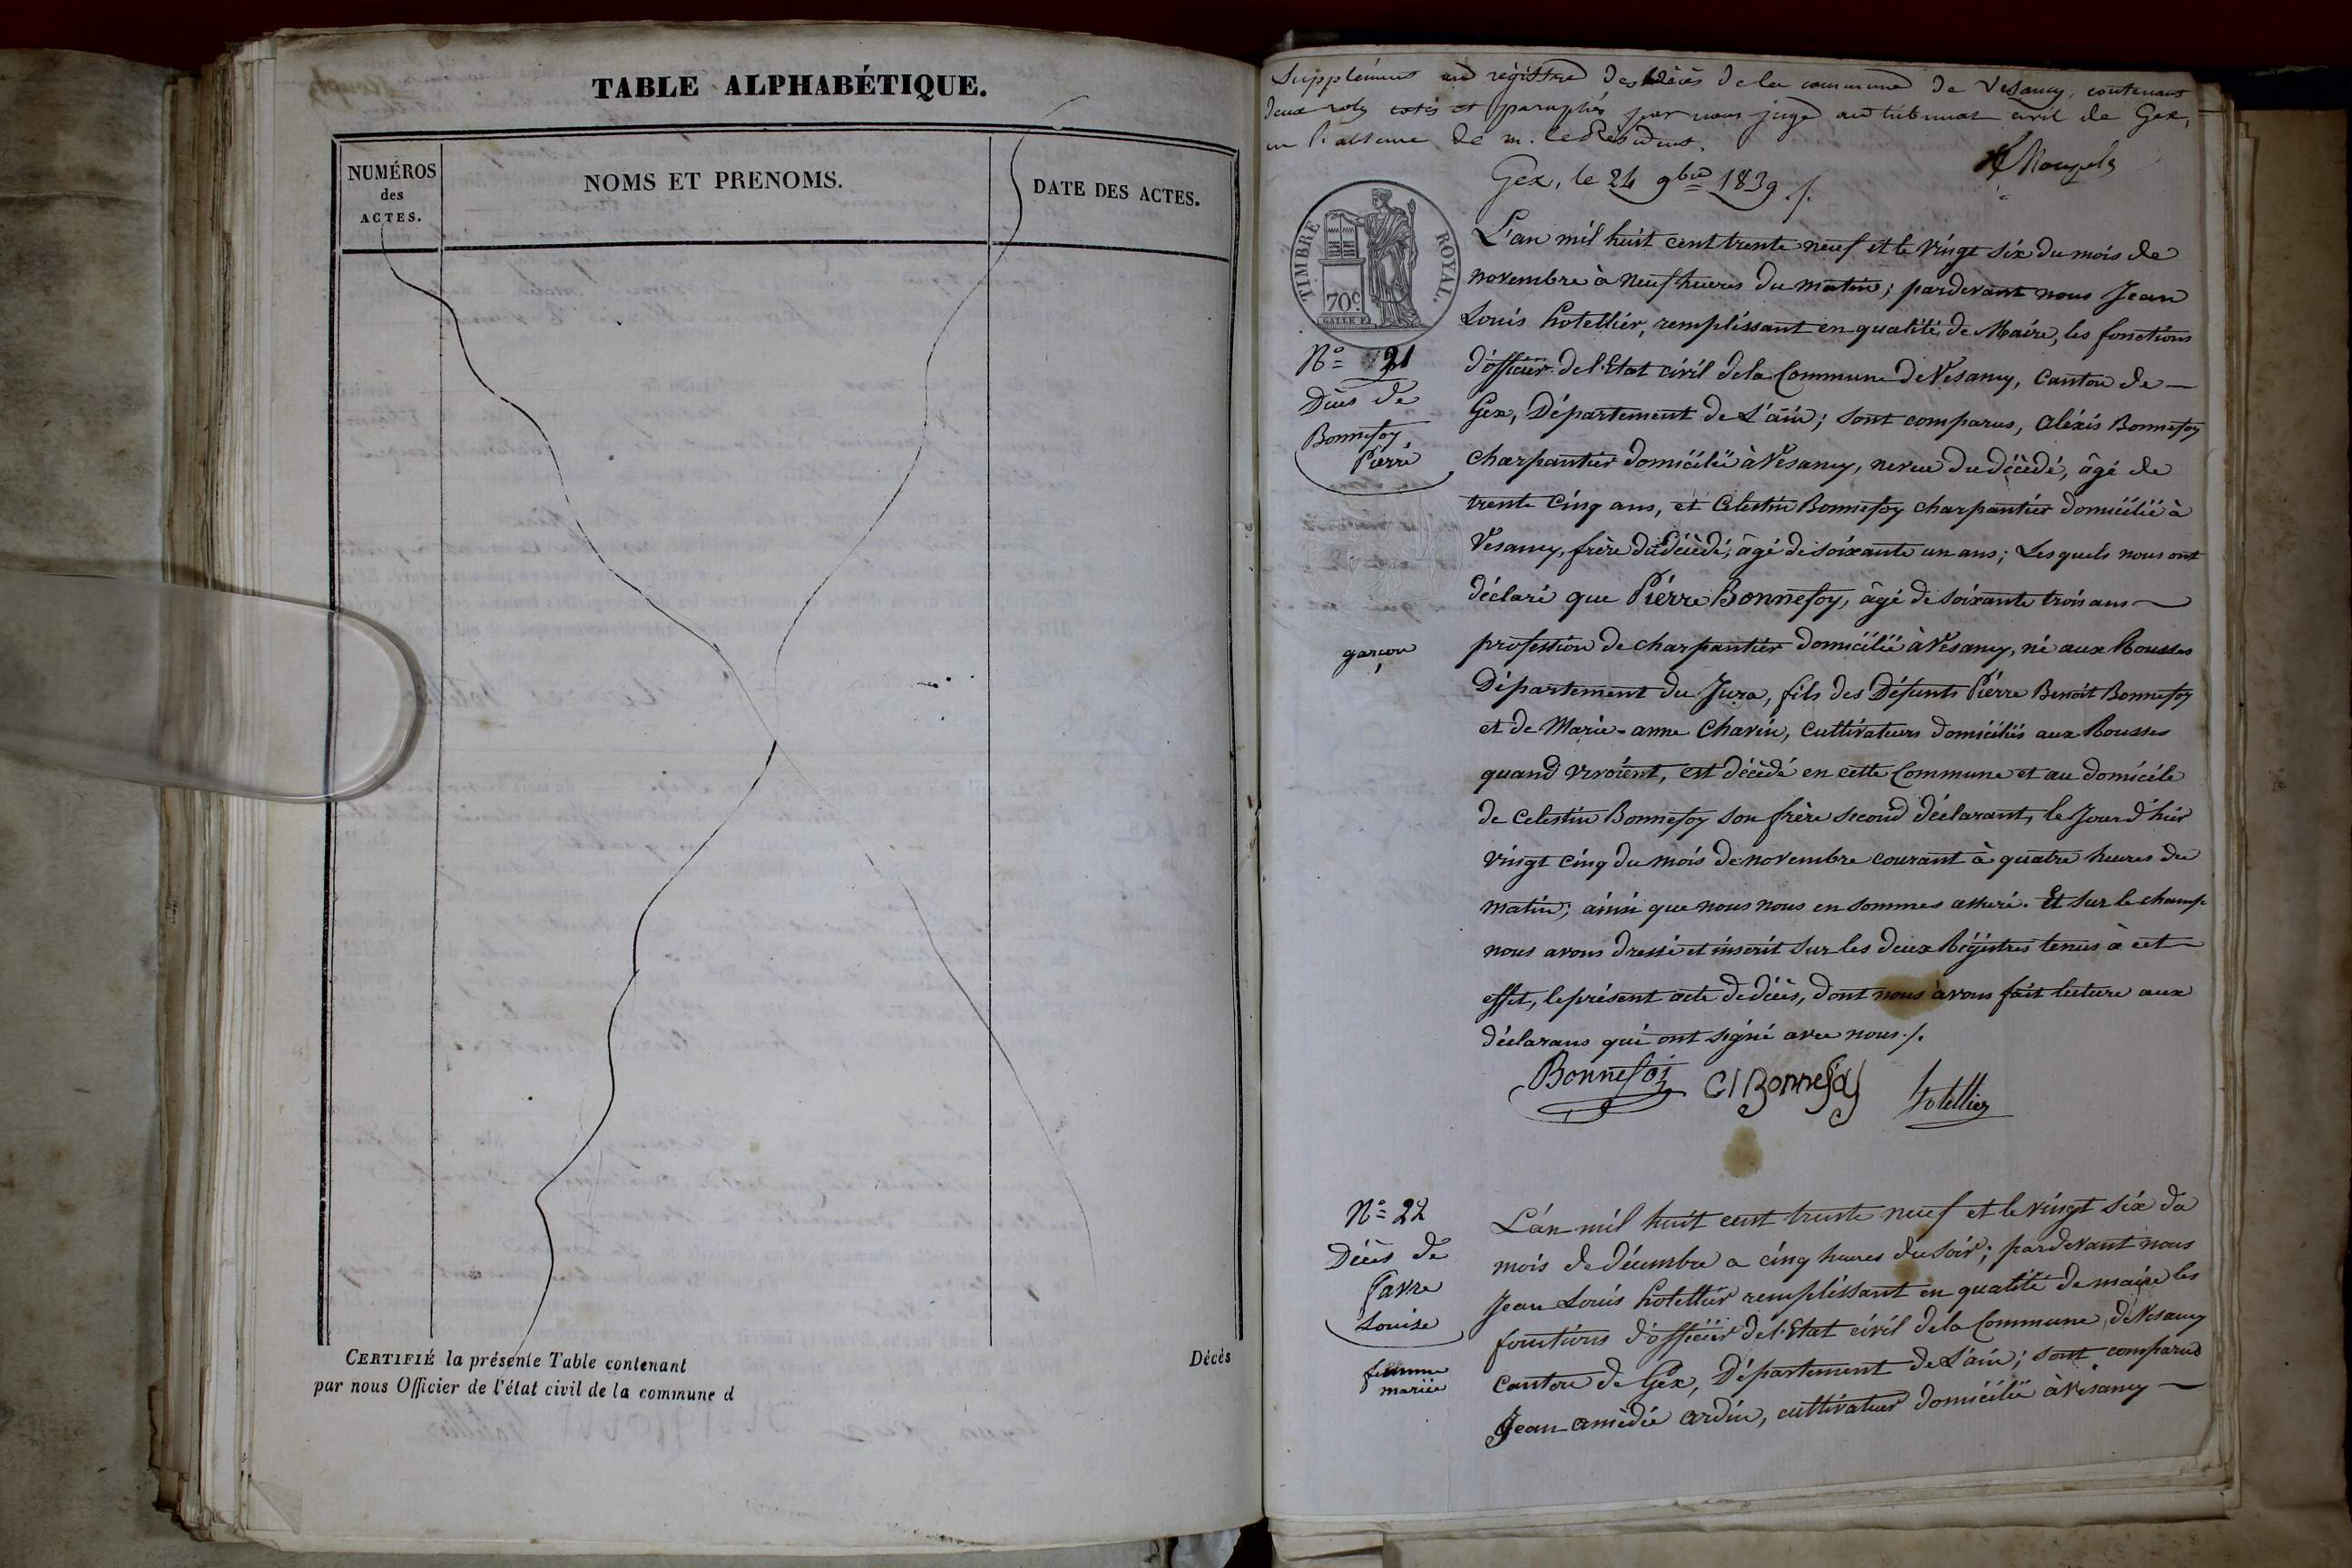 TABLE ALPHABÉTIQUE.
NUMÉROS
des
ACTES.
NOMS ET PRENOMS.
DATE DES ACTES.
CERTIFIÉ la présente Table contenant
Décès
par nous Officier de l'état civil de la commune d
Supplément au régistre des Décès de la commune de Vesancy, contenant
deux rolles cotés et paraphés par nous juge au tribunal civil de Gex,
en l'absence de m. le Président.
Gex, le 24 9bre 1839 ./.
TIMBRE ROYAL.
70c
GALLE F.
L'an mil huit cent trente neuf et le vingt six du mois de
novembre à neuf heures du matin; pardevant nous Jean
Louis hotellier, remplissant en qualité de Maire, les fonctions
No 21
d'officier de l'Etat civil de la Commune de Vesancy, Canton de
Décès de
Gex, Département de L'ain; sont comparus, Aléxis Bonnefoy
Bonnefoy,
Pierre
charpantier domicilié à Vesancy, neveu du décédé, âgé de
trente cinq ans, et Celestin Bonnefoy charpantier domicilié à
Vesancy, frère du décédé, âgé de soixante un ans; Lesquels nous ont
déclaré que Pierre Bonnefoy, âgé de soixante trois ans
garçon
profession de charpantier domicilié à Vesancy, né aux Rousses
Département du Jura, fils des Défunts Pierre Benoit Bonnefoy
et de Marie-anne Chavin, Cultivateurs domiciliés aux Rousses
quand vivoient, est décédé en cette Commune et au domicile
de Celestin Bonnefoy son frère second déclarant, le Jour d'hier
vingt cinq du mois de novembre courant à quatre heures du
matin; ainsi que nous nous en sommes assuré. Et sur le champ
nous avons dressé et inscrit sur les deux Régistres tenus à cet
effet, le présent acte de décès, dont nous avons fait lecture aux
déclarans qui ont signé avec nous ./.
Bonnefoi Cl Bonnefoy hotellier
No 22
Décès de
Favre
Louise
femme
mariée
L'an mil huit cent trente neuf et le vingt six du
mois de décembre a cinq heures du soir; pardevant nous
Jean Louis hotellier remplissant en qualité de maire les
fonctions d'officier de l'Etat civil de la Commune de Vesancy
canton de Gex, Département de L'ain; sont comparus
Jean amédée ardin, cultivateur domicilié à Vesancy